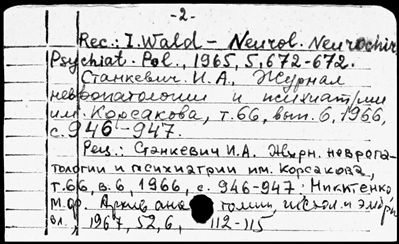 -2-
Rec.: I. Wald - Neurol. Neurochir.
Psychiat. Pol., 1965, 5, 672-672.
Станкевич И.А. Журнал
невропатологии и психиатрии
им. Корсакова, т.66, вып.6, 1966,
с. 946-947.
Рец.: Станкевич И.А. Журн. невропа-
тологии и психиатрии им. Корсакова,
т.66, в.6, 1966, с. 946-947; Никитенко
М.Ф. Архив ана томии, гистол. и эмбри
ол., 1967, 52, 6, 112-115